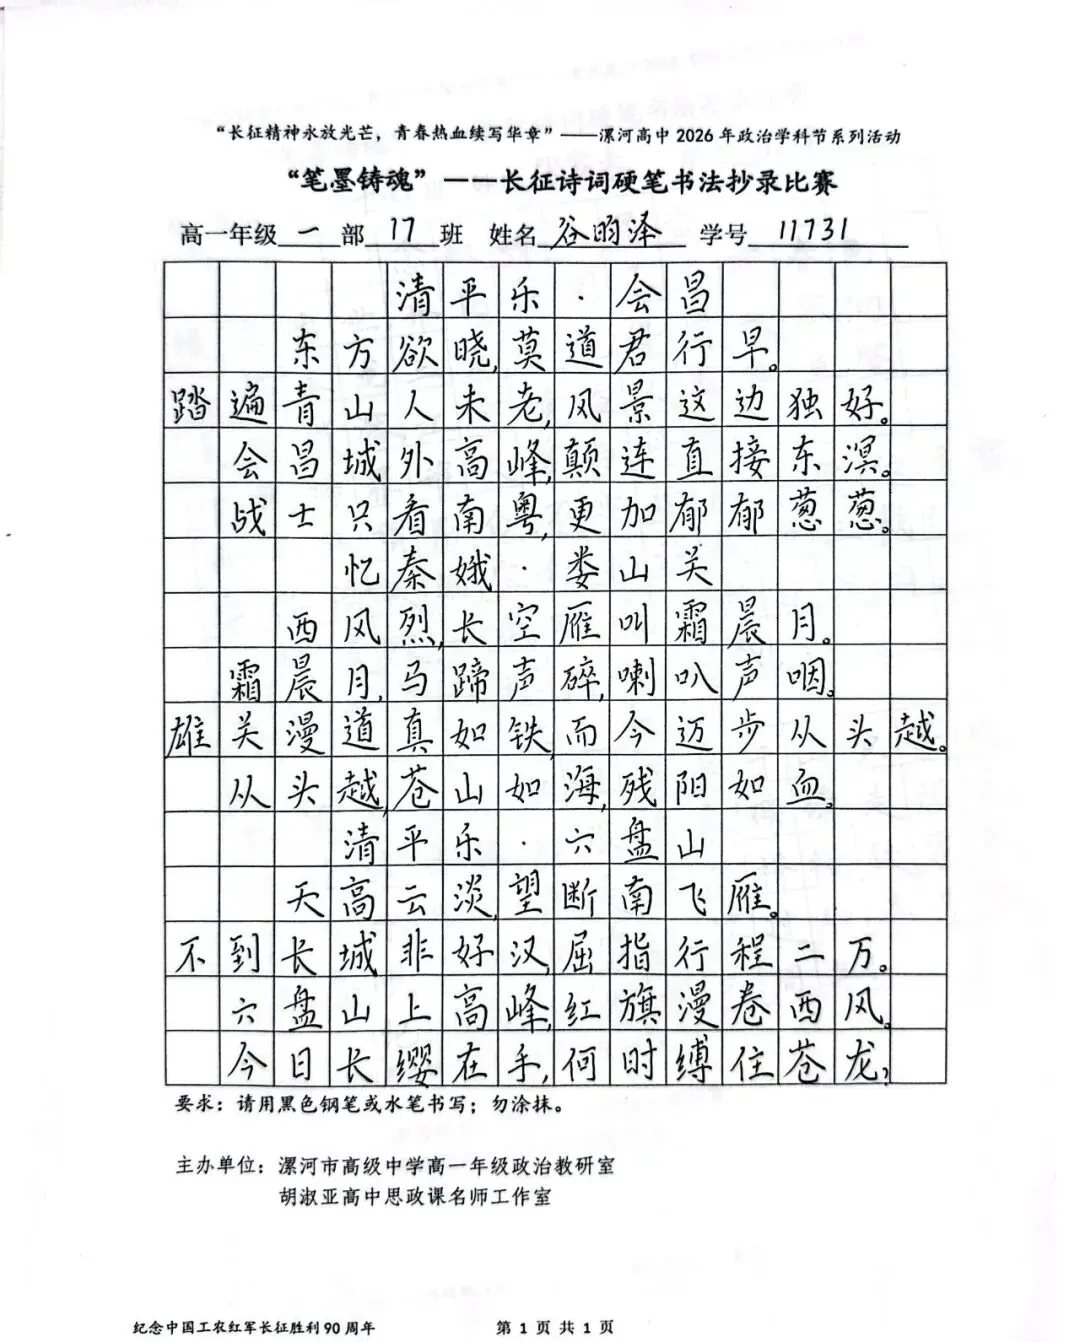 “长征精神永放光芒，青春热血续写华章”——漯河高中 2026 年政治学科节系列活动
“笔墨铸魂”——长征诗词硬笔书法抄录比赛
高一年级 一 部 17 班 姓名 谷昀泽 学号 11731
清平乐·会昌
东方欲晓,莫道君行早。
踏遍青山人未老,风景这边独好。
会昌城外高峰,颠连直接东溟。
战士只看南粤,更加郁郁葱葱。
忆秦娥·娄山关
西风烈,长空雁叫霜晨月。
霜晨月,马蹄声碎,喇叭声咽。
雄关漫道真如铁,而今迈步从头越。
从头越,苍山如海,残阳如血。
清平乐·六盘山
天高云淡,望断南飞雁。
不到长城非好汉,屈指行程二万。
六盘山上高峰,红旗漫卷西风。
今日长缨在手,何时缚住苍龙?
要求：请用黑色钢笔或水笔书写；勿涂抹。
主办单位：漯河市高级中学高一年级政治教研室
胡淑亚高中思政课名师工作室
纪念中国工农红军长征胜利 90 周年
第 1 页 共 1 页